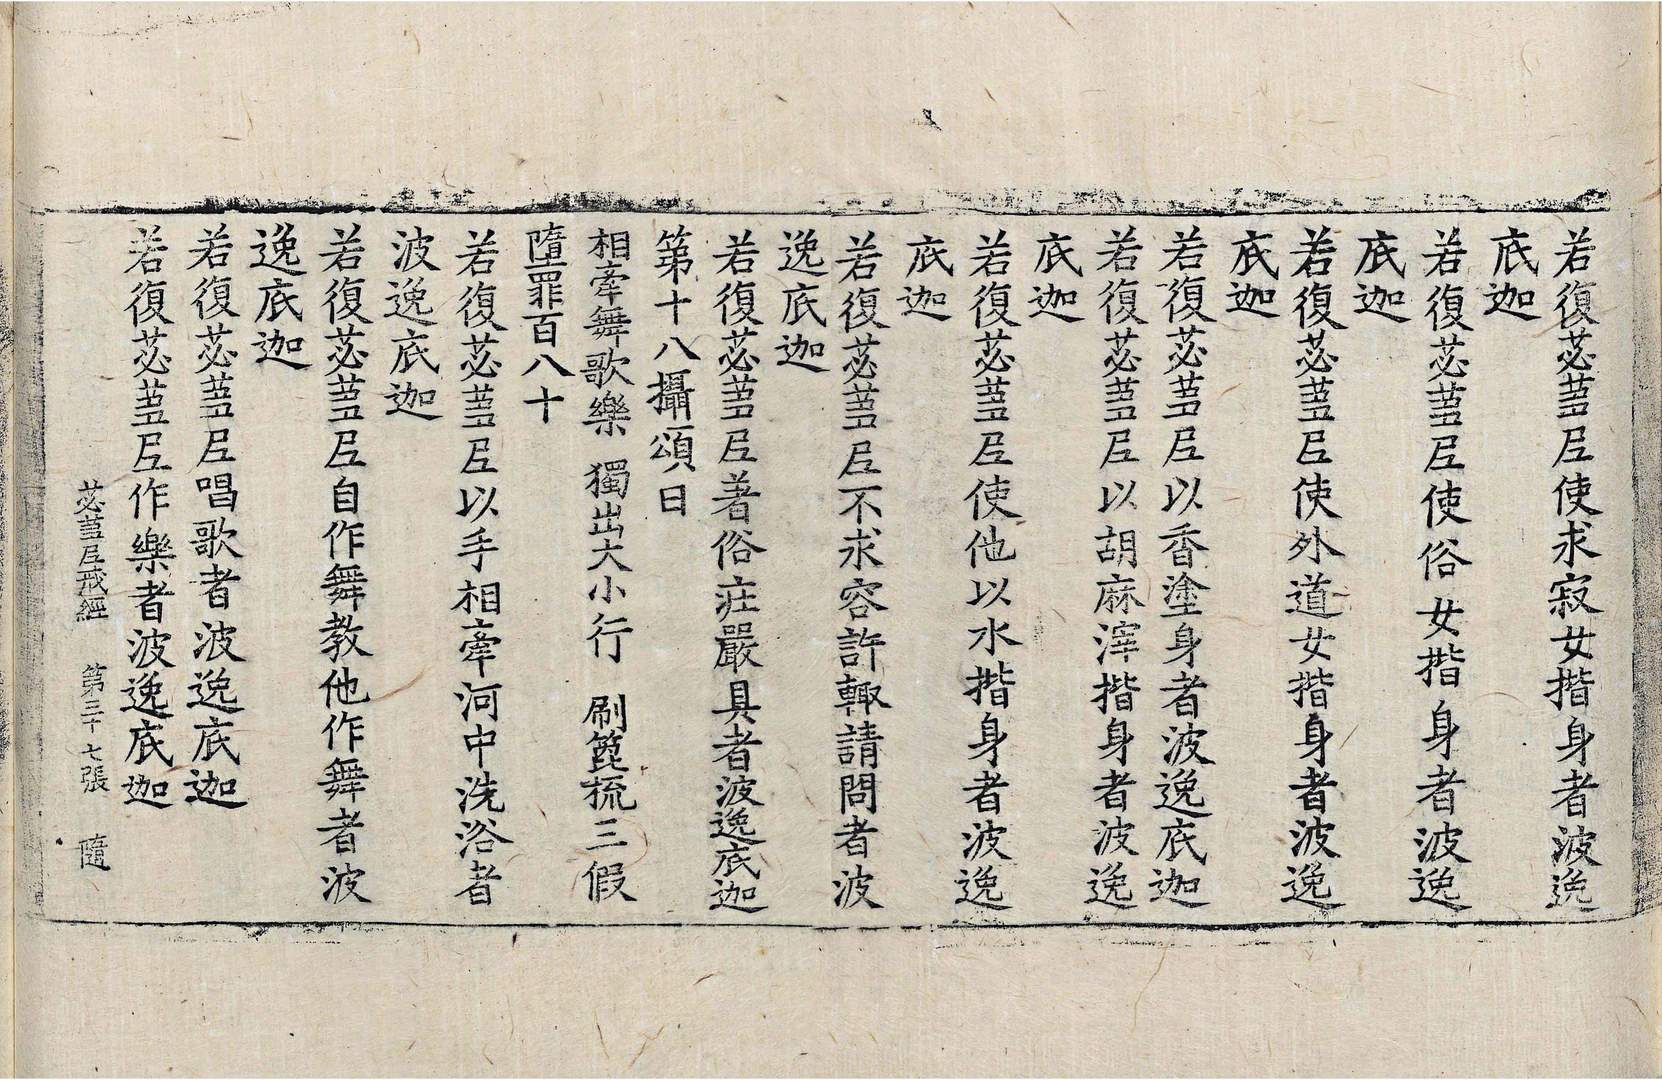 若復苾蒭尼使求寂女揩身者波逸
底迦
若復苾蒭尼使俗女揩身者波逸
底迦
若復苾蒭尼使外道女揩身者波逸
底迦
若復苾蒭尼以香塗身者波逸底迦
若復苾蒭尼以胡麻滓揩身者波逸
底迦
若復苾蒭尼使他以水揩身者波逸
底迦
若復苾蒭尼不求容許輙請問者波
逸底迦
若復苾蒭尼著俗莊嚴具者波逸底迦
第十八攝頌曰
相牽舞歌樂 獨出大小行 刷箆梳三假
墮罪百八十
若復苾蒭尼以手相牽河中洗浴者
波逸底迦
若復苾蒭尼自作舞教他作舞者波
逸底迦
若復苾蒭尼唱歌者波逸底迦
若復苾蒭尼作樂者波逸底迦
苾蒭尼戒經 第三十七張 隨